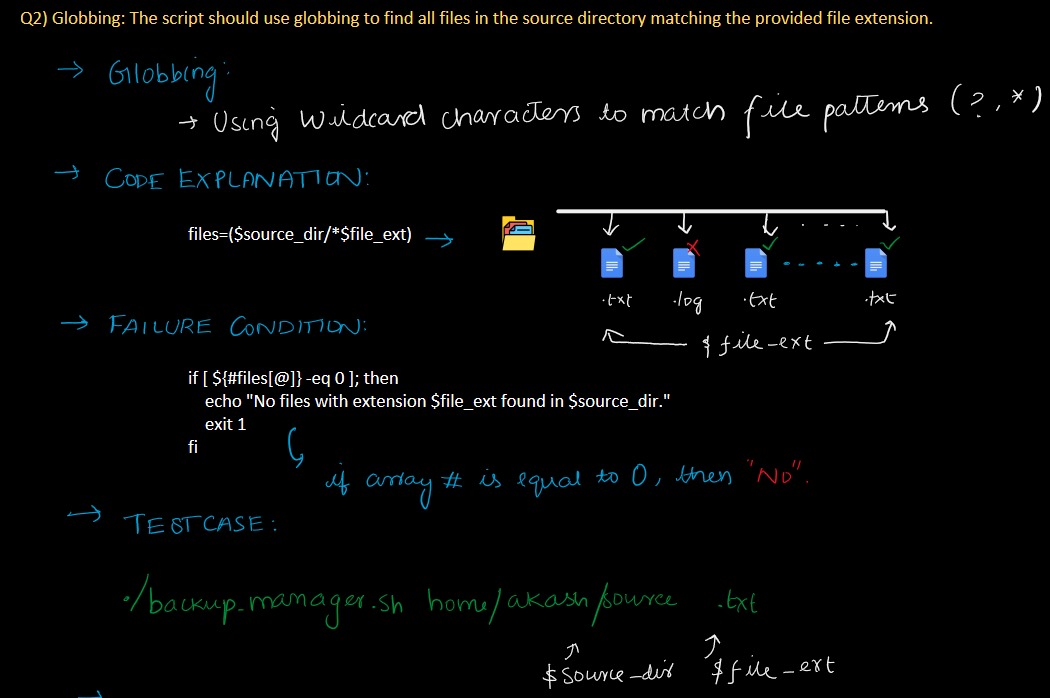 Q2) Globbing: The script should use globbing to find all files in the source directory matching the provided file extension.
→ Globbing:
→ Using wildcard characters to match file patterns (?, *)
→ CODE EXPLANATION:
files=($source_dir/*$file_ext) →
.txt .log .txt .txt
$file_ext
→ FAILURE CONDITION:
if [ ${#files[@]} -eq 0 ]; then
echo "No files with extension $file_ext found in $source_dir."
exit 1
fi
if array # is equal to 0, then "No".
→ TESTCASE:
./backup_manager.sh home/akash/source .txt
$source_dir $file_ext